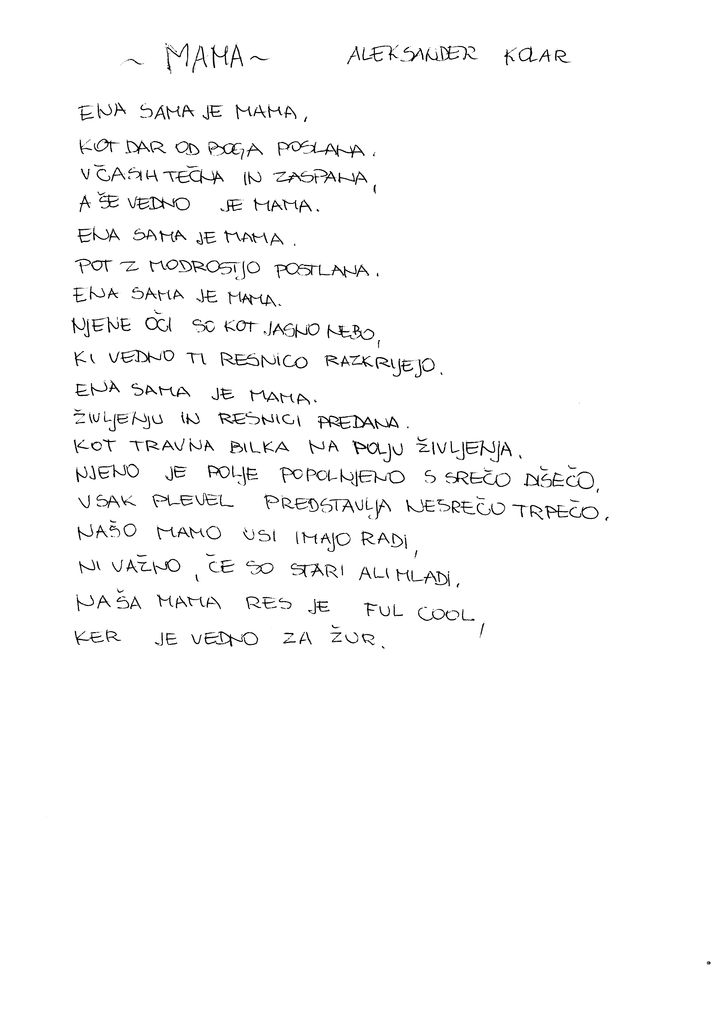 ~ MAMA ~ ALEKSANDER KOLAR
ENA SAMA JE MAMA,
KOT DAR OD BOGA POSLANA.
VČASIH TEČNA IN ZASPANA,
A ŠE VEDNO JE MAMA.
ENA SAMA JE MAMA.
POT Z MODROSTJO POSTLANA.
ENA SAMA JE MAMA.
NJENE OČI SO KOT JASNO NEBO,
KI VEDNO TI RESNICO RAZKRIJEJO.
ENA SAMA JE MAMA.
ŽIVLJENJU IN RESNICI PREDANA.
KOT TRAVNA BILKA NA POLJU ŽIVLJENJA.
NJENO JE POLJE POPOLNJENO S SREČO DIŠEČO,
VSAK PLEVEL PREDSTAVLJA NESREČO TRPEČO.
NAŠO MAMO VSI IMAJO RADI,
NI VAŽNO, ČE SO STARI ALI MLADI.
NAŠA MAMA RES JE FUL COOL,
KER JE VEDNO ZA ŽUR.